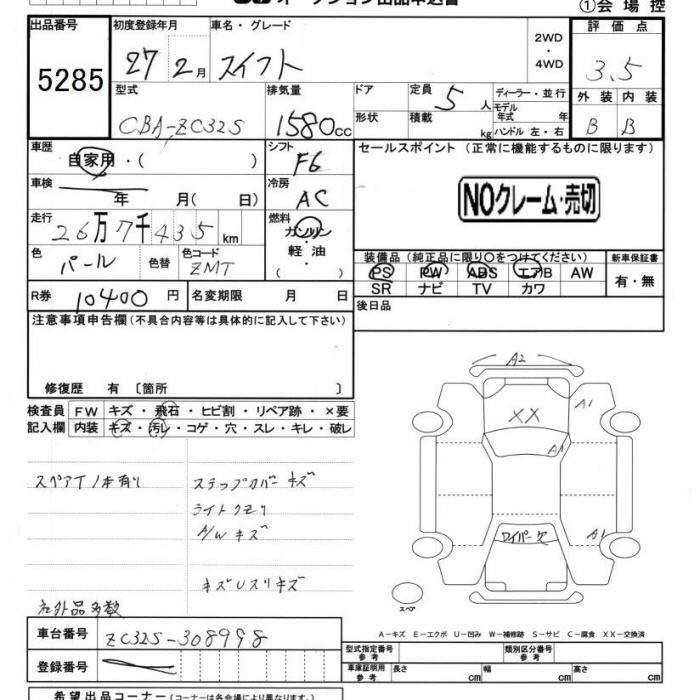 オークション出品申込書
①会場控
出品番号
5285
初度登録年月
27 2月
車名・グレード
スイフト
2WD
・
4WD
評価点
3.5
型式
CBA-ZC32S
排気量
1580cc
ドア
形状
定員 5人
積載 kg
ディーラー・並行
モデル年式 年
ハンドル 左・右
外装 内装
B B
車歴
自家用・( )
シフト
F6
セールスポイント (正常に機能するものに限ります)
NOクレーム・売切
車検
年 月( 日)
冷房
AC
走行
26万7千435km
燃料
ガソリン
軽油
( )
色
パール
色替
色コード
ZMT
装備品 (純正品に限り○をつけてください)
PS PW ABS エアB AW
SR ナビ TV カワ
新車保証書
有・無
R券 10400円
名変期限 月 日
後日品
注意事項申告欄(不具合内容等は具体的に記入して下さい)
修復歴 有〔箇所 〕
検査員記入欄
FW キズ・飛石・ヒビ割・リペア跡・×要
内装 キズ・汚レ・コゲ・穴・スレ・キレ・破レ
スペアT1本有り
ステップカバーキズ
ライトクモリ
A/Wキズ
キズUスリキズ
社外品多数
A2
XX
A1
A1
ワイパー欠
A1
スペア
A−キズ E−エクボ U−凹み W−補修跡 S−サビ C−腐食 XX−交換済
車台番号
ZC32S-308998
登録番号
型式指定番号 参考
類別区分番号 参考
車庫証明用 参考
長さ cm
幅 cm
高さ cm
希望出品コーナー(コーナーは各会場により異なります。)